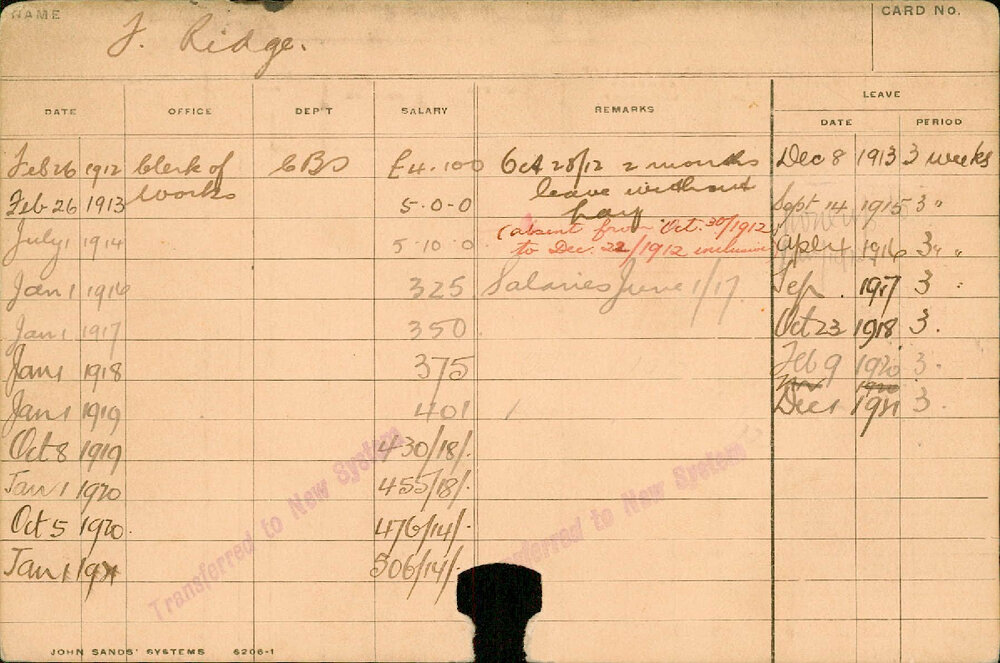 NAME
CARD No.
J. Ridge.
LEAVE
DATE OFFICE DEP'T SALARY REMARKS DATE PERIOD
Feb 26 1912 Clerk of CBS £4.10.0 Oct 28/12 2 months Dec 8 1913 3 weeks
works leave without
Feb 26 1913 5-0-0 pay Sept 14 1915 3 "
(absent from Oct. 30/1912
July 1 1914 5.10.0 to Dec. 22/1912 inclusive 1916 3 " "
Jan 1 1916 325 Salaries June 1/17 Sep. 1917 3 "
Jan 1 1917 350 Oct 23 1918 3.
Jan 1 1918 375 Feb 9 1920 3.
Jan 1 1919 401 Dec 1 1921 3.
Oct 8 1919 430/18/-
Jan 1 1920 455/18/-
Oct 5 1920. 476/14/-
Jan 1 1921 506/14/-
Transferred to New System
Transferred to New System
JOHN SANDS' SYSTEMS 6206-1